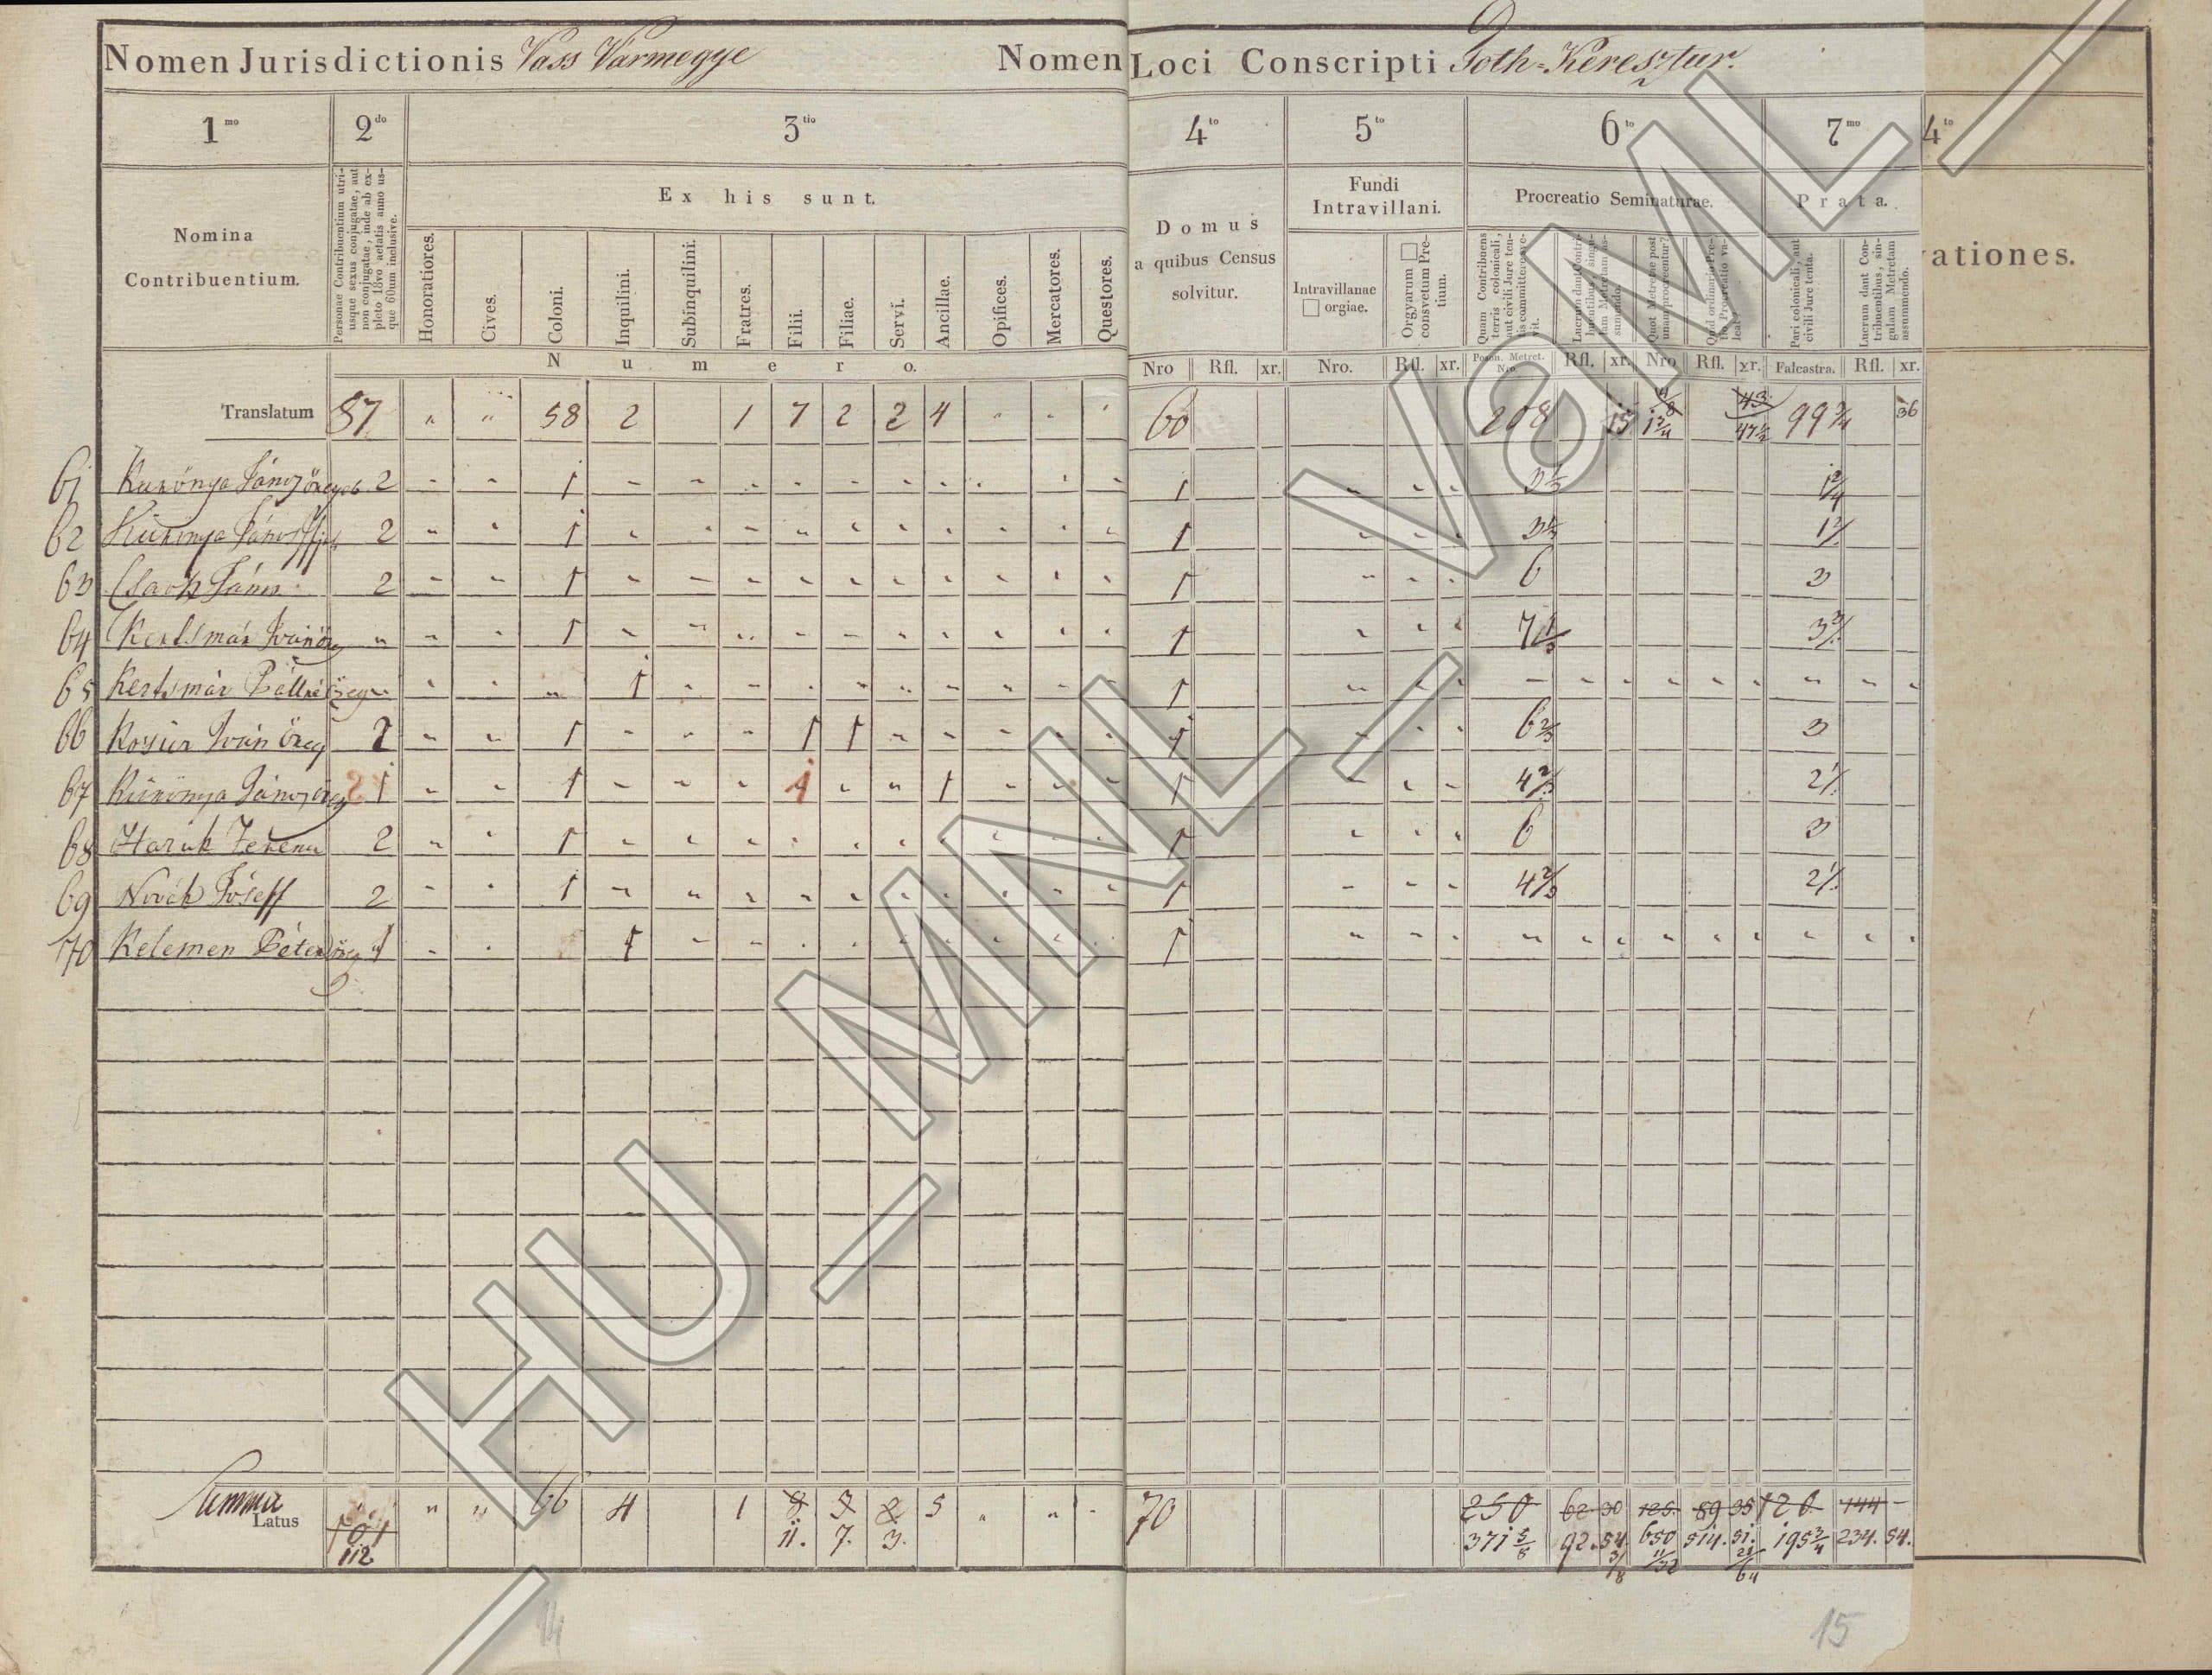 Nomen Jurisdictionis Vass Vármegye Nomen Loci Conscripti Toth-Keresztur.
1mo 2do 3tio 4to 5to 6to 7mo 4to
Nomina Contribuentium.
Personae Contribuentium utri-
usque sexus conjugatae, aut
non conjugatae, inde ab ex-
pleto 18vo aetatis anno us-
que 60um inclusive.
Ex his sunt.
Honoratiores. Cives. Coloni. Inquilini. Subinquilini. Fratres. Filii. Filiae. Servi. Ancillae. Opifices. Mercatores. Questores.
Numero.
Domus
a quibus Census
solvitur.
Fundi
Intravillani.
Intravillanae
□ orgiae.
Orgyarum □
consvetum Pre-
tium.
Procreatio Seminaturae.
Quam Contribuens
terris colonicali,
aut civili Jure ten-
tis committere
Prata.
Pari colonicali, aut
civili Jure tenta.
Lucrum dant Con-
tribuentibus, sin-
gulam Metretam
assummendo.
vationes.
Nro Rfl. xr. Nro. Rfl. xr. Poson. Metret. Nro. Rfl. xr. Nro Rfl. xr. Falcastra. Rfl. xr.
Translatum 87 " " 58 2 1 7 2 2 4 " " " 60 208 15 1 3/4 43 47 1/2 99 3/4 36
61 Kuzónya János öregeb 2 - - 1 - - - - - - - - - - 1 - - - 3 1/3 1 2/4
62 Kuzónya János 2 - - 1 - - - - - - - - - - 1 - - - 1
63 Csach János 2 - - 1 - - - - - - - - - - 1 - - - 6 3
64 Kertsmár Iván öreg - - - 1 - - - - - - - - - - 1 - - - 7 1/3
65 Kertsmár öreg - - - - 1 - - - - - - - - - 1 - - - - - - - - - - - -
66 Iván Öreg 2 - - 1 - - - 1 1 - - - - - 1 - - - 6 2/3 3
67 Kuzónya János öreg 2 1 - - 1 - - - 1 - - 1 - - - 1 - - - 4 2/3
68 Harik 2 - - 1 - - - - - - - - - - 1 - - - 6 3
69 Novák Jóseff 2 - - 1 - - - - - - - - - - 1 - - - 4 2/3
70 Kelemen Péter öreg 1 - - 1 - - - - - - - - - 1 - - - - - - - - - - - -
Summa
Latus 101 " " 66 4 1 8 3 2 5 " " - 70 250 62 30 125. 89 35 126 144 -
112 11. 7. 3. 371 5/8 92. 54. 3/8 650 11/32 514. 51. 21/64 195 3/4 234. 54.
14 15
HU_MNL_VaML_